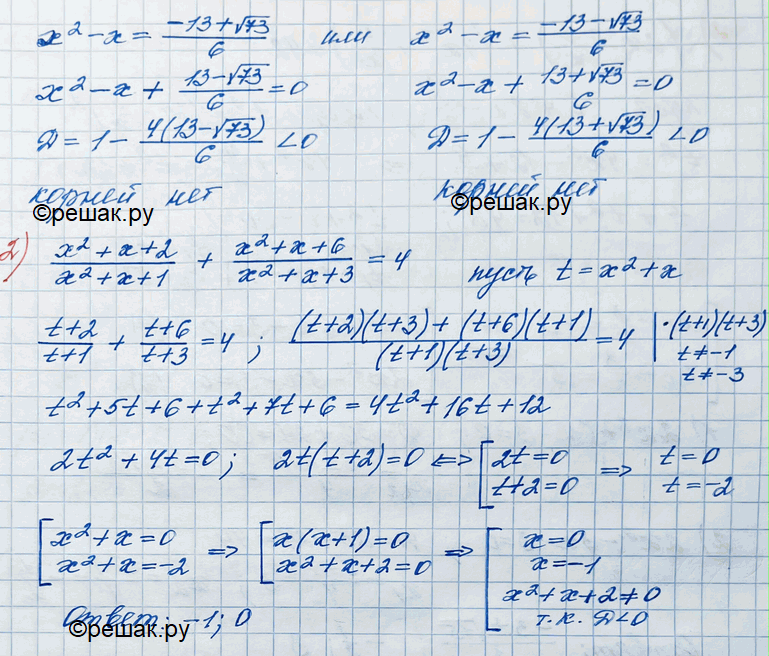 x² - x = (-13+√73)/6 или x² - x = (-13-√73)/6
x² - x + (13-√73)/6 = 0 x² - x + (13+√73)/6 = 0
D = 1 - 4(13-√73)/6 < 0 D = 1 - 4(13+√73)/6 < 0
корней нет корней нет
©решак.ру ©решак.ру
2) (x²+x+2)/(x²+x+1) + (x²+x+6)/(x²+x+3) = 4 пусть t = x²+x
(t+2)/(t+1) + (t+6)/(t+3) = 4 ; ((t+2)(t+3) + (t+6)(t+1))/((t+1)(t+3)) = 4 | ·(t+1)(t+3)
t ≠ -1
t ≠ -3
t² + 5t + 6 + t² + 7t + 6 = 4t² + 16t + 12
2t² + 4t = 0 ; 2t(t+2) = 0 ⇔ [ 2t = 0 ⇒ t = 0
t+2 = 0 t = -2
[ x² + x = 0 ⇒ [ x(x+1) = 0 ⇒ [ x = 0
x² + x = -2 x² + x + 2 = 0 x = -1
x² + x + 2 ≠ 0
Ответ: -1; 0 т.к. D<0
©решак.ру